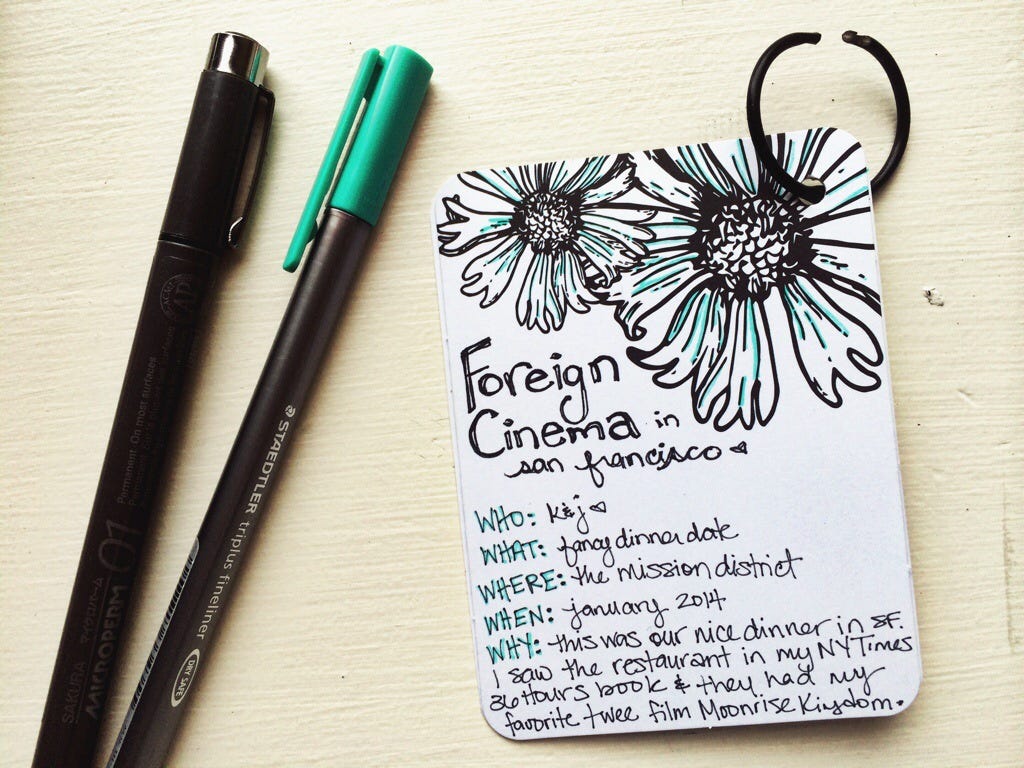 Foreign
Cinema in
san francisco
WHO: k&j
WHAT: fancy dinner date
WHERE: the mission district
WHEN: january 2014
WHY: this was our nice dinner in SF.
I saw the restaurant in my NYTimes
36 Hours book & they had my
favorite twee film Moonrise Kingdom.
STAEDTLER triplus fineliner
DRY SAFE
SAKURA
MICROPERM 01
Permanent. On most surfaces